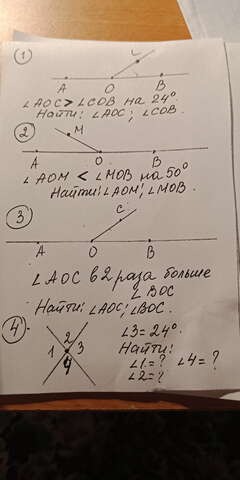 1
C
A O B
∠AOC > ∠COB на 24°.
Найти: ∠AOC; ∠COB.
2
M
A O B
∠AOM < ∠MOB на 50°
Найти: ∠AOM; ∠MOB.
3
C
A O B
∠AOC в 2 раза больше
∠BOC
Найти: ∠AOC; ∠BOC.
4
1 2 3
4
∠3 = 24°.
Найти:
∠1 = ? ∠4 = ?
∠2 = ?